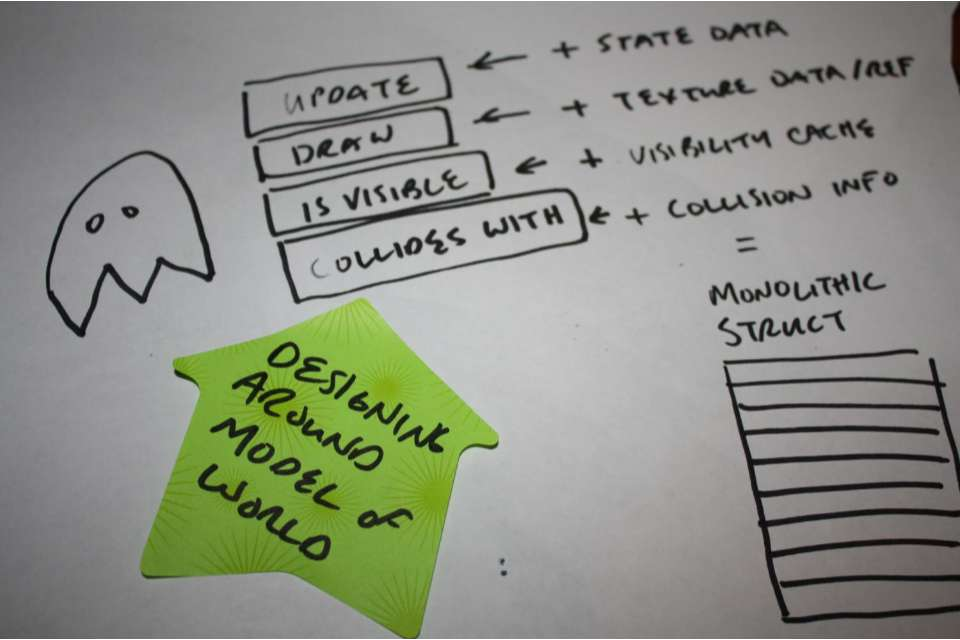 UPDATE ← + STATE DATA
DRAW ← + TEXTURE DATA/REF
IS VISIBLE ← + VISIBILITY CACHE
COLLIDES WITH ← + COLLISION INFO
=
MONOLITHIC
STRUCT
DESIGNING
AROUND
MODEL OF
WORLD